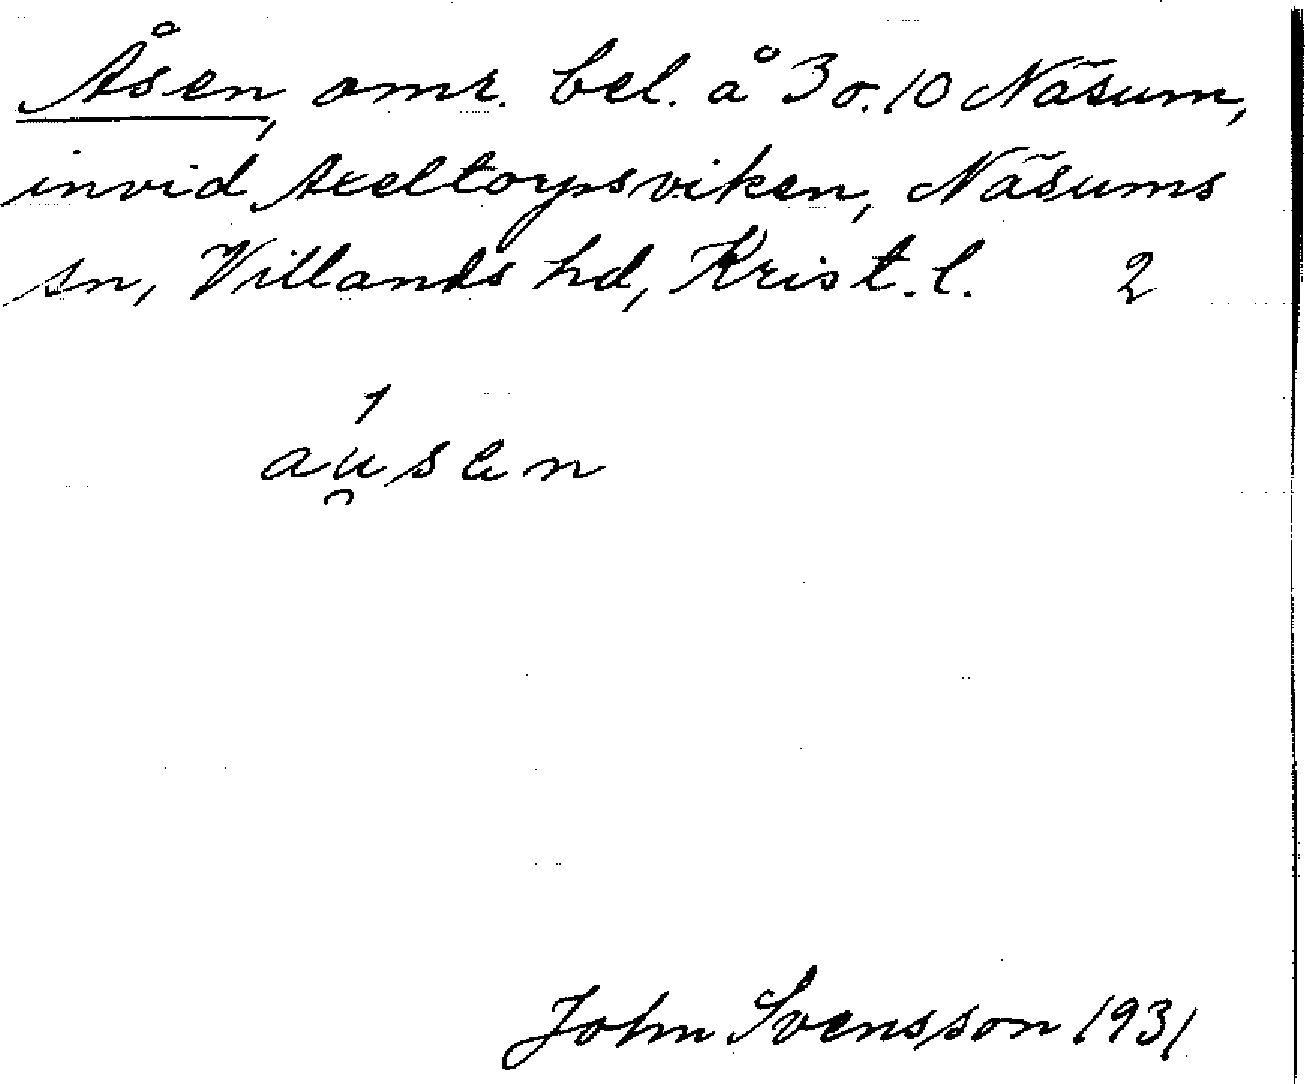 Åsen, omr. bel. å 3 o. 10 Näsum,
invid Axeltorpsviken, Näsums
sn, Villands hd, Krist. l. 2
1
au̯sen
John Svensson 1931